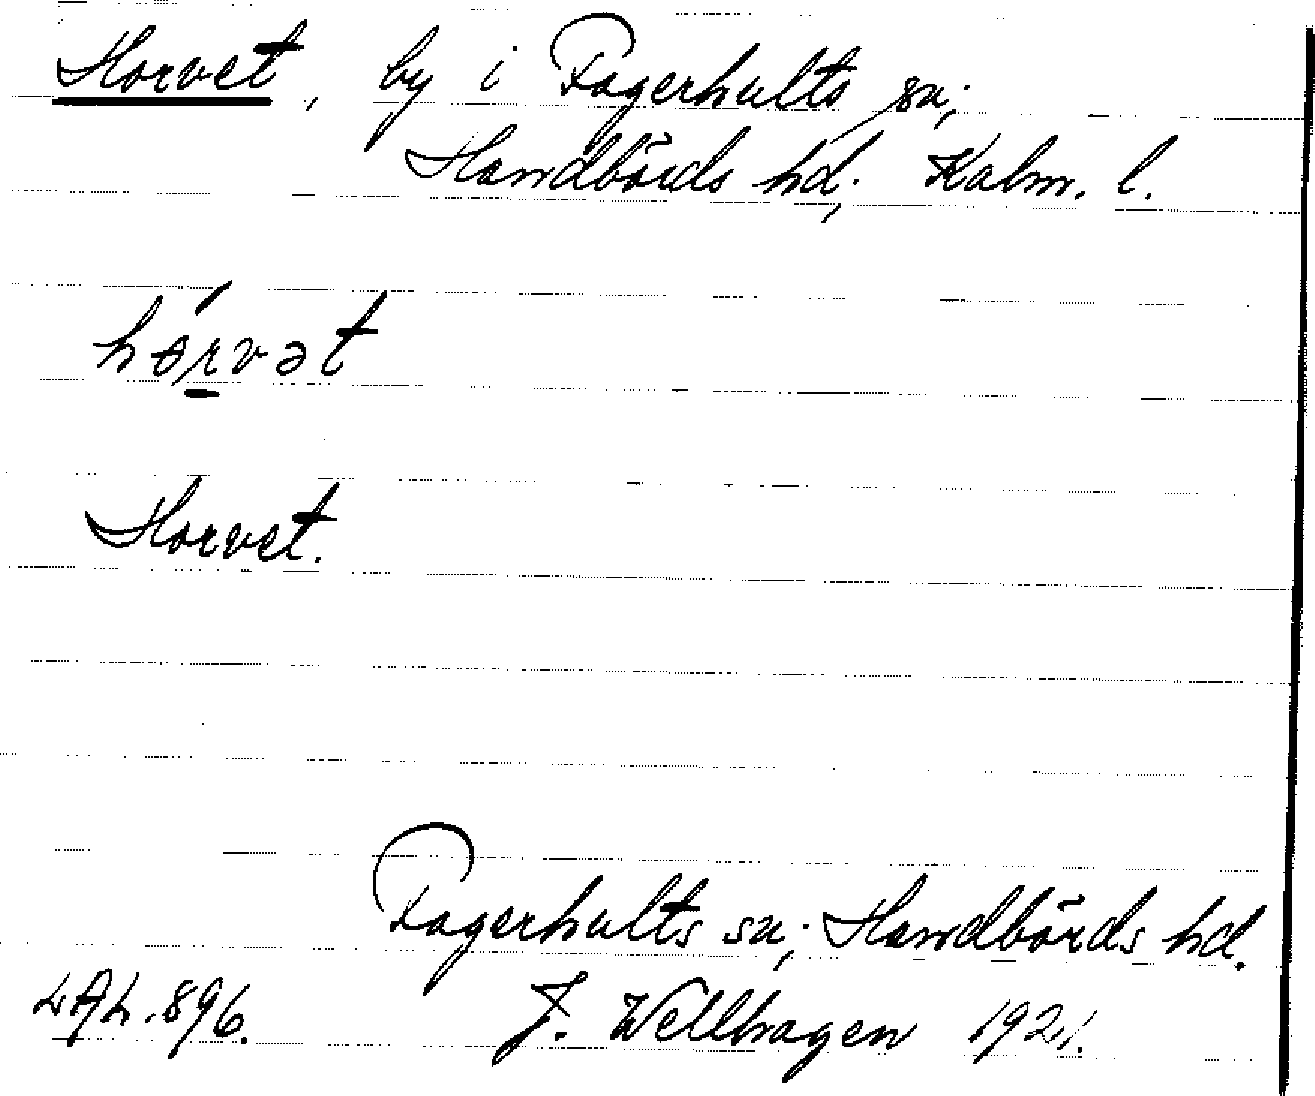 Horvet, by i Fagerhults sn;
Handbörds hd, Kalm. l.
hɵ́rvət
Horvet.
Fagerhults sn; Handbörds hd.
LAL. 896. J. Wellhagen 1921.